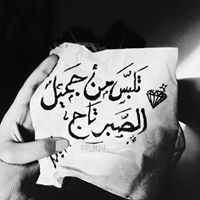 تلبَّس من جميل
الصَّبر تاج